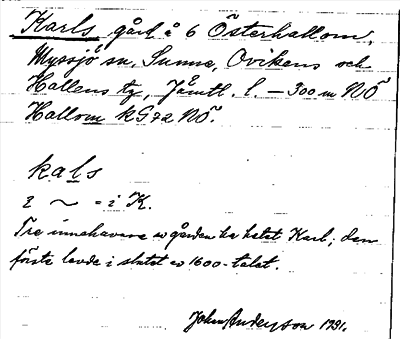 Karls gård å 6 Österhallom,
Myssjö sn, Sunne, Ovikens och
Hallens tg, Jämtl. l. — 300 m NÖ
Hallom kG72 NÖ.
kals
i ~ = i K.
Tre innehavare av gården ha hetat Karl; den
förste levde i slutet av 1600-talet.
John Anderson 1931.